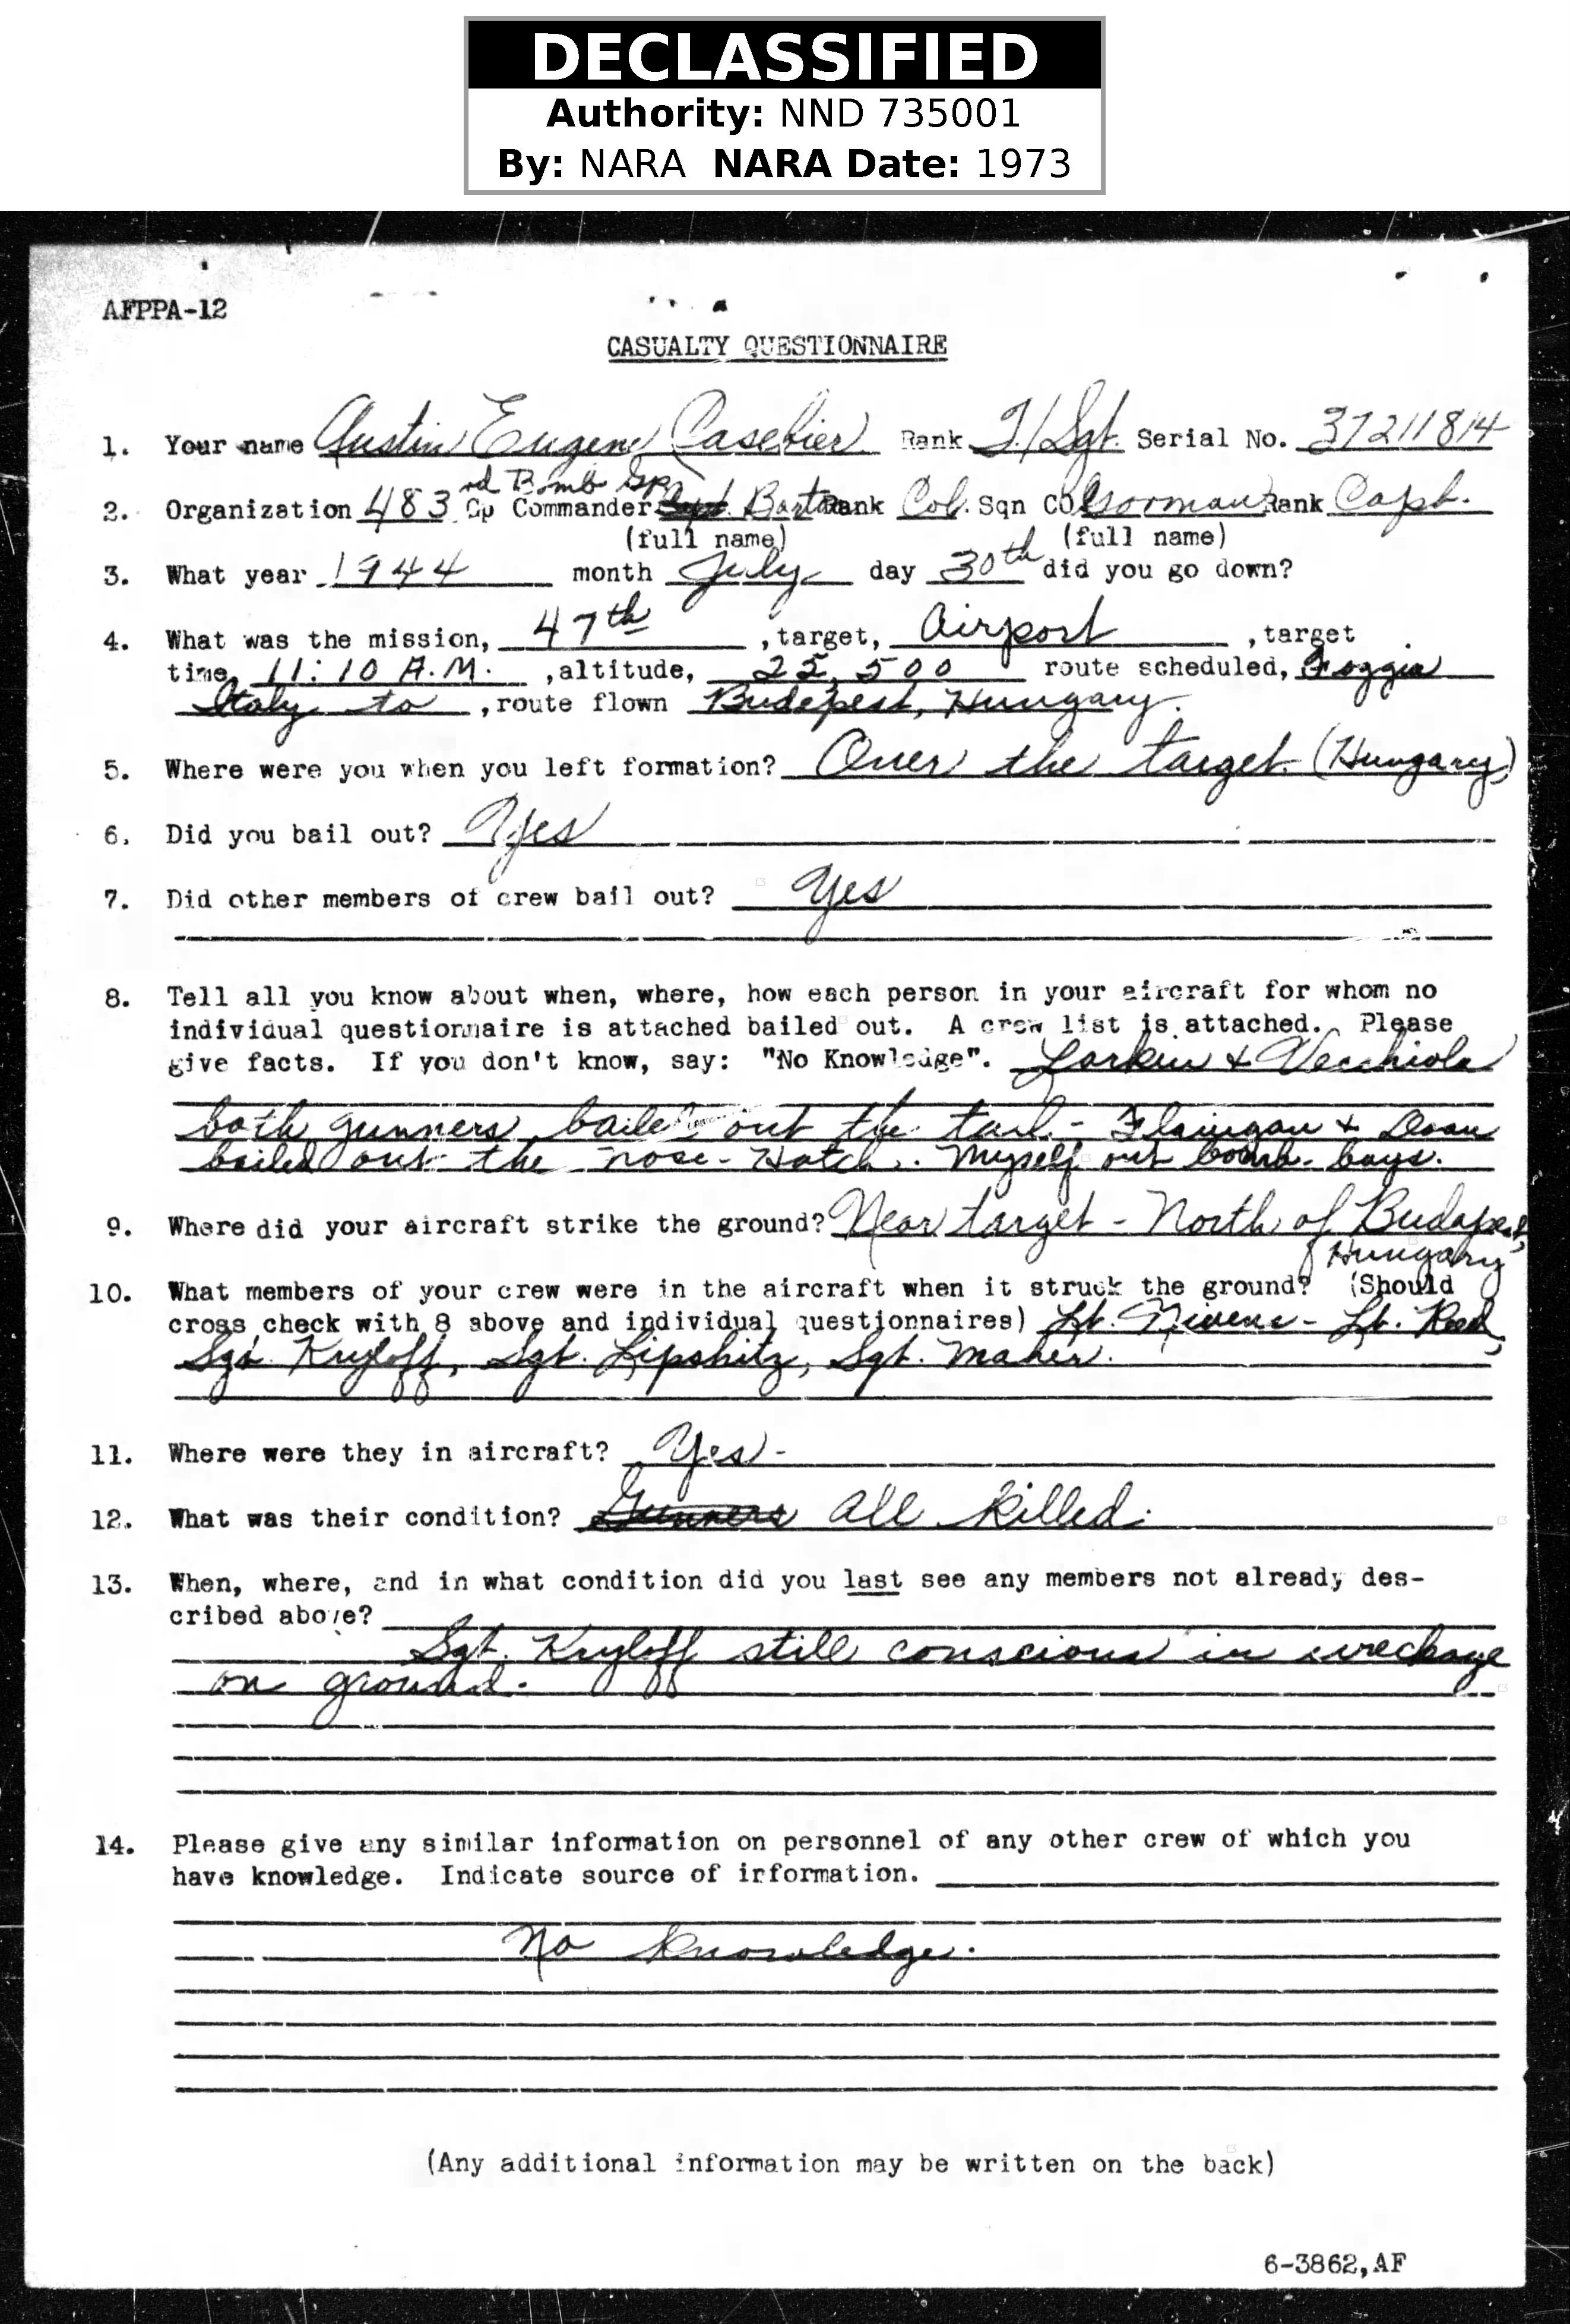 DECLASSIFIED
Authority: NND 735001
By: NARA NARA Date: 1973
AFPPA-12
CASUALTY QUESTIONNAIRE
1. Your name Austin Eugene Casebier Rank T/Sgt. Serial No. 37211814
rd Bomb Gp
2. Organization 483 Gp Commander Barton Rank Col. Sqn CO Gorman Rank Capt.
(full name) (full name)
3. What year 1944 month July day 30th did you go down?
4. What was the mission, 47th , target, Airport , target
time, 11:10 A.M. , altitude, 25,500 route scheduled, Foggia
Italy to , route flown Budepest, Hungary.
5. Where were you when you left formation? Over the target (Hungary)
6. Did you bail out? Yes
7. Did other members of crew bail out? Yes
8. Tell all you know about when, where, how each person in your aircraft for whom no
individual questionnaire is attached bailed out. A crew list is attached. Please
give facts. If you don't know, say: "No Knowledge". Larkin & Vecchiola
both gunners bailed out the tail - Flanigan & Doan
bailed out the nose-Hatch. Myself out bomb-bays.
9. Where did your aircraft strike the ground? Near target - North of Budapest,
Hungary
10. What members of your crew were in the aircraft when it struck the ground? (Should
cross check with 8 above and individual questionnaires) Lt. Nivens - Lt. Reed,
Sgt. Kryloff, Sgt. Lipshitz, Sgt. Maher.
11. Where were they in aircraft? Yes -
12. What was their condition? Gunners all killed.
13. When, where, and in what condition did you last see any members not already des-
cribed above?
Sgt. Kryloff still conscious in wreckage
on ground.
14. Please give any similar information on personnel of any other crew of which you
have knowledge. Indicate source of information.
No knowledge.
(Any additional information may be written on the back)
6-3862,AF